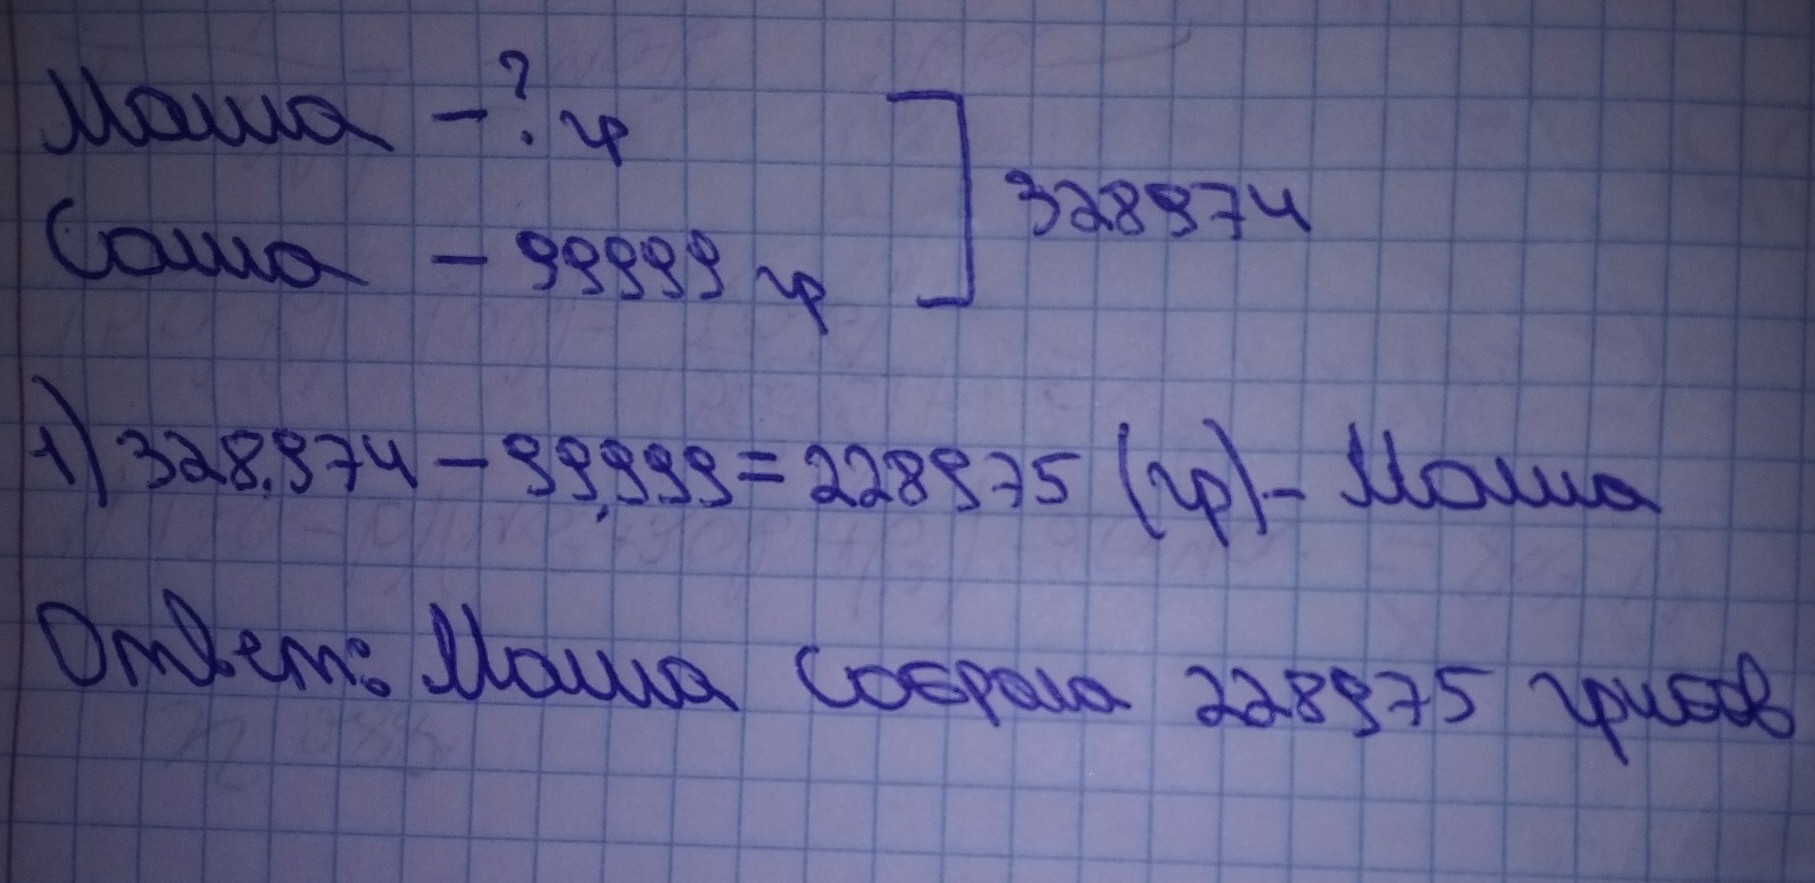 Маша - ? гр
Саша - 99999 гр
328974
1) 328.974 - 99,999 = 228975 (гр) - Маша
Ответ: Маша собрала 228975 грибов